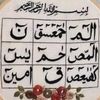 بسم الله الرحمن الرحيم
الٓمٓ حٓمٓعٓسٓقٓ نٓ
الٓمٓصٓ حٰمٓ يٰسٓ
كٓهٰيٰعٓصٓ قٓ امين